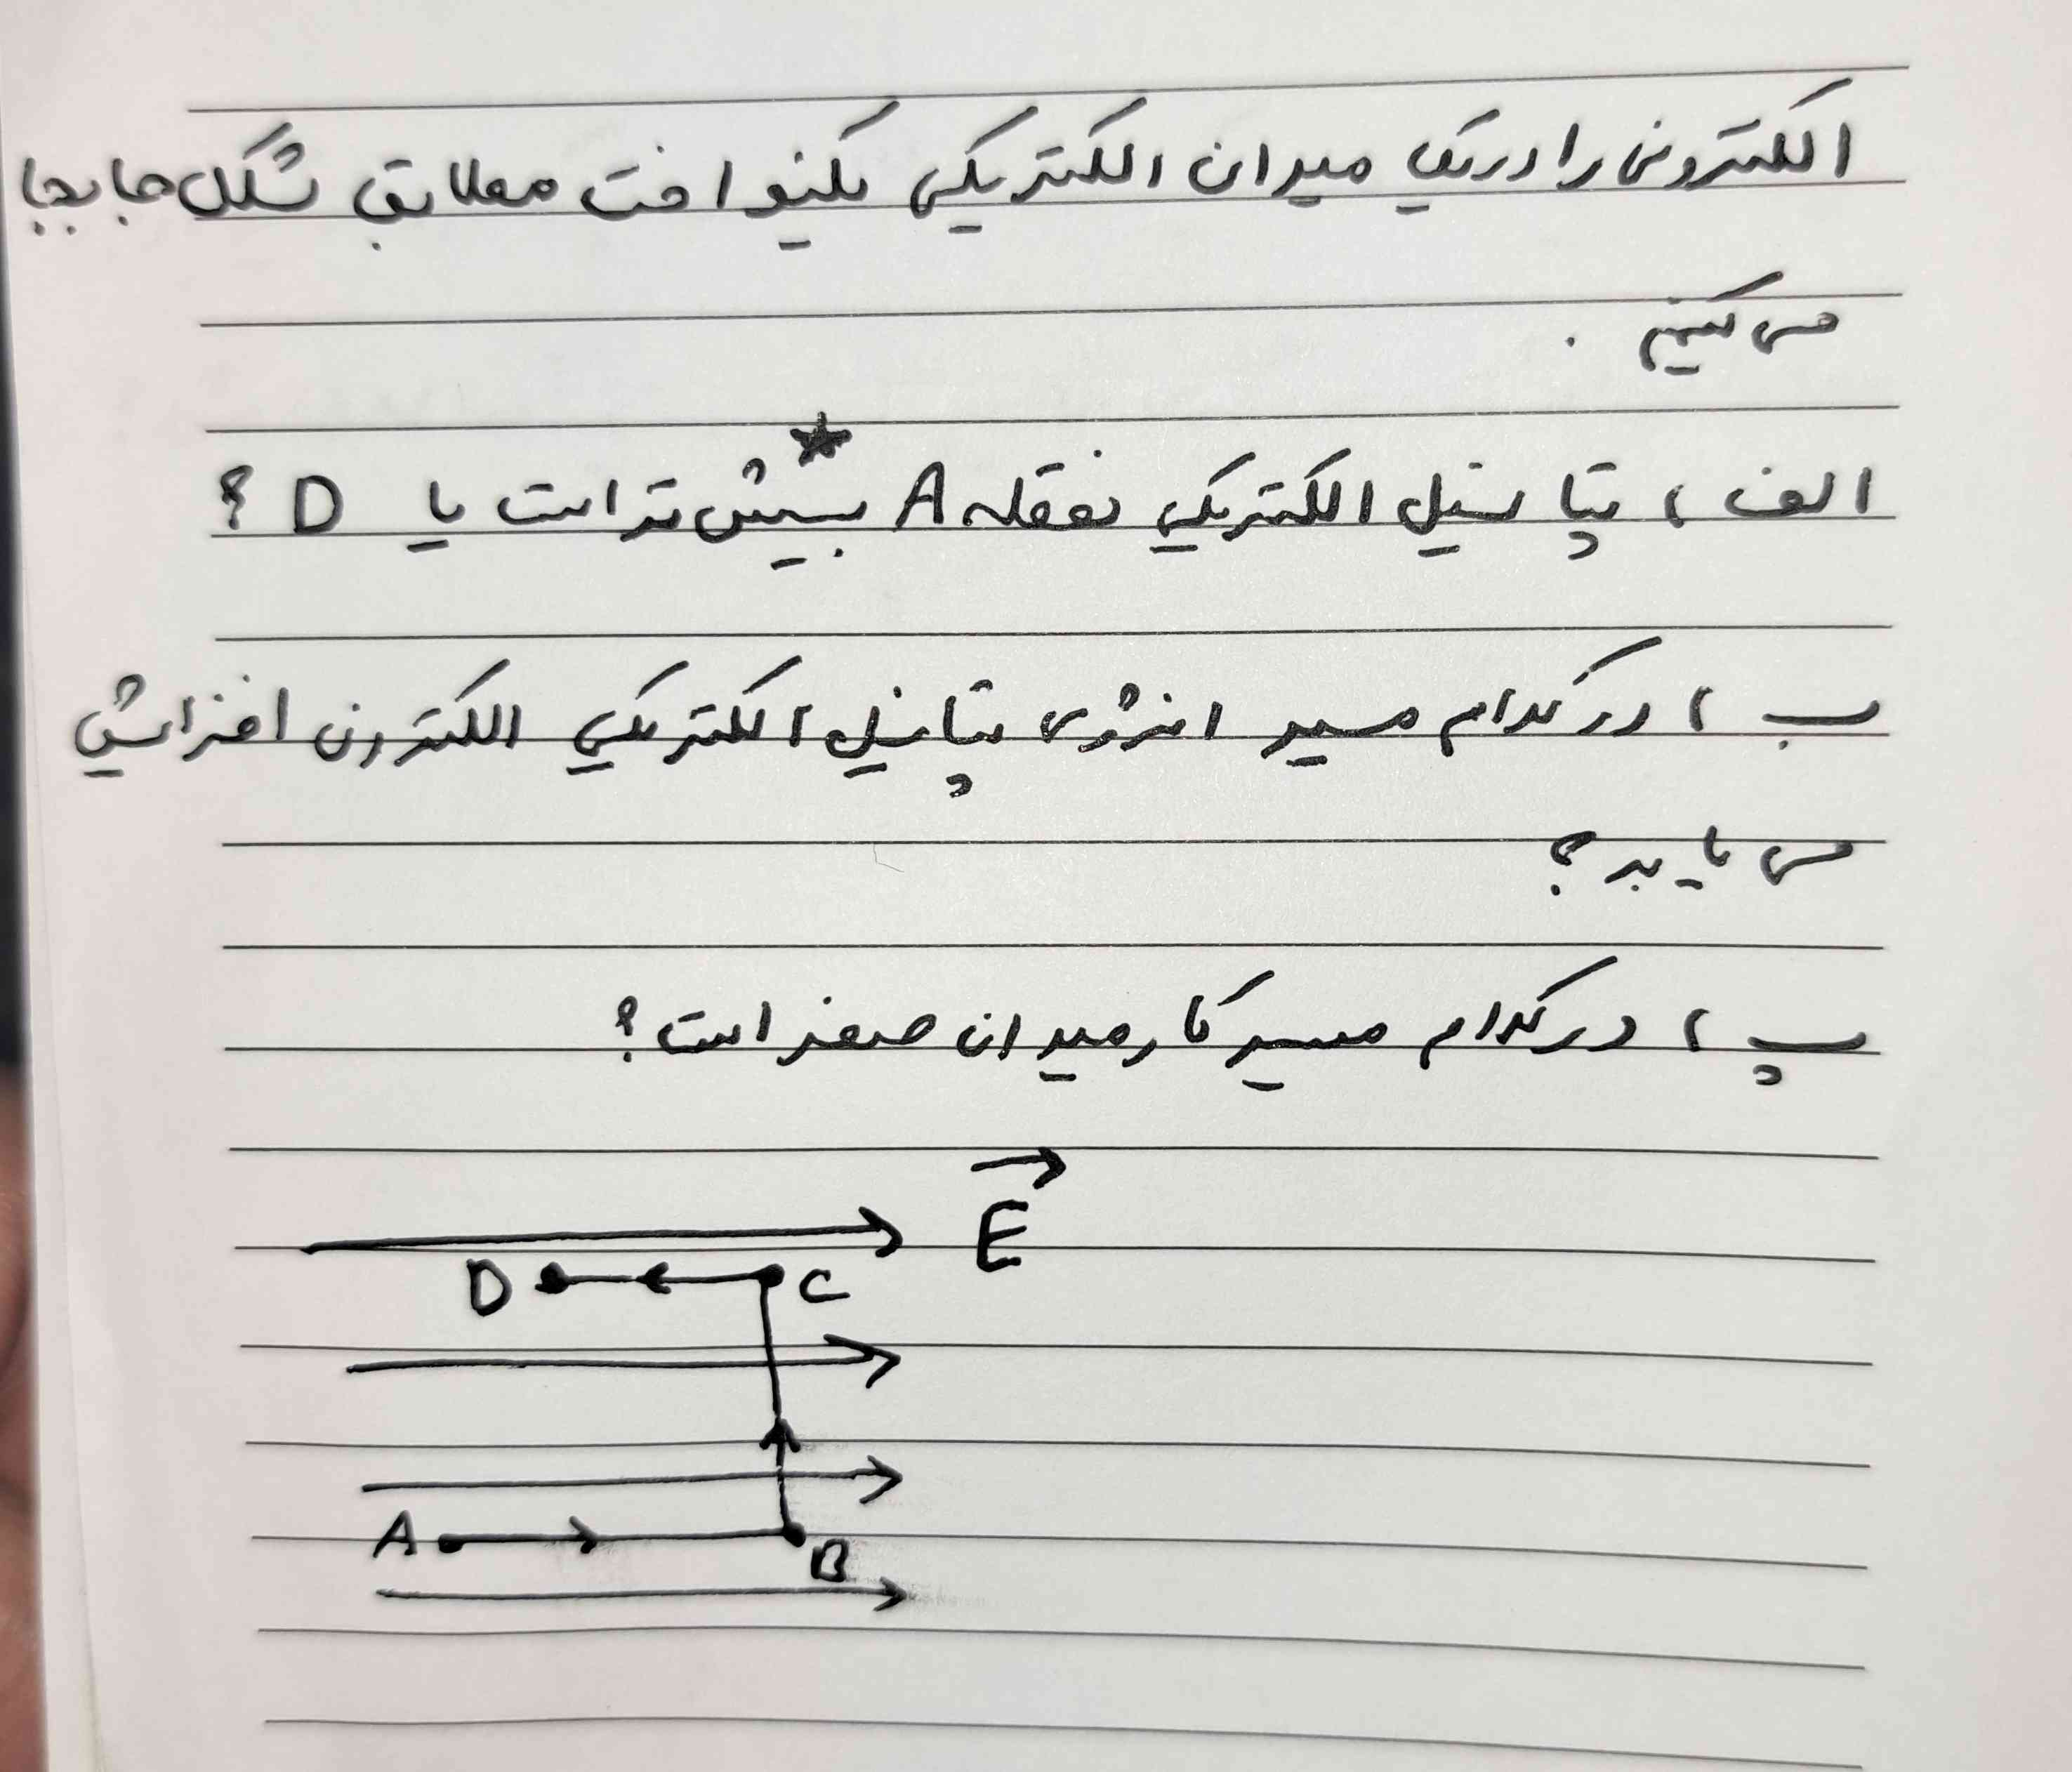 الکترونی را در یک میدان الکتریکی یکنواخت مطابق شکل جابجا
می کنیم .
الف ) پتانسیل الکتریکی نقطه A بیش تر است یا D ؟
ب ) در کدام مسیر انرژی پتانسیل الکتریکی الکترون افزایش
می یابد ؟
پ ) در کدام مسیر کار میدان صفر است ؟
E
D C
A B